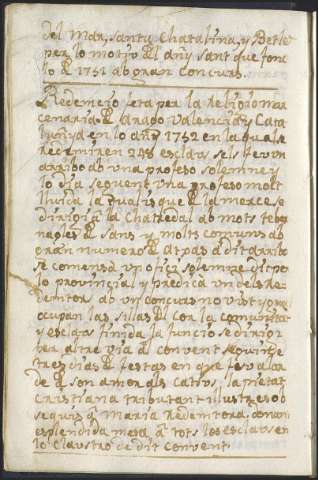 del Mar, Santa Chatalina, y Betle
per lo motiu del añy sant que fon
lo de 1751 ab gran Concurs.
Redemcio feta per la religio mer
cenaria de Arago Valencia y Cata
lunya en lo añy 1752 en la qual se
redemiren 248 esclaus sels feu un
arribo ab una profeso solemne y
lo dia seguent una profeso molt
lluida la qual isque de la merce se
dirigi a la Chatredal ab mots
de sans y molts comuns ab
gran numero de atxas a dit arribo
se comensà un ofici solemne
lo provincial y predicà un dels Re
demtor ab un concurs no vist y
ocupan las sillas del Cor la comunitat
y esclaus finida la funcio se dirigi
per altre via al convent seguince
tres dias de festas en que feu alar
de de son amor als catius la pietat
cristiana tributant illustres ob
sequis a Maria Redemtora, donan
esplendida mesa a tots los esclaus en
lo Claustro de dit convent